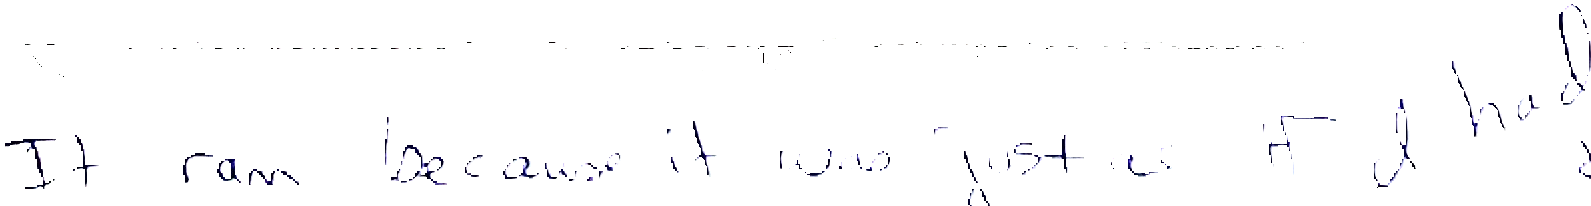 It ran because it was just as if I had